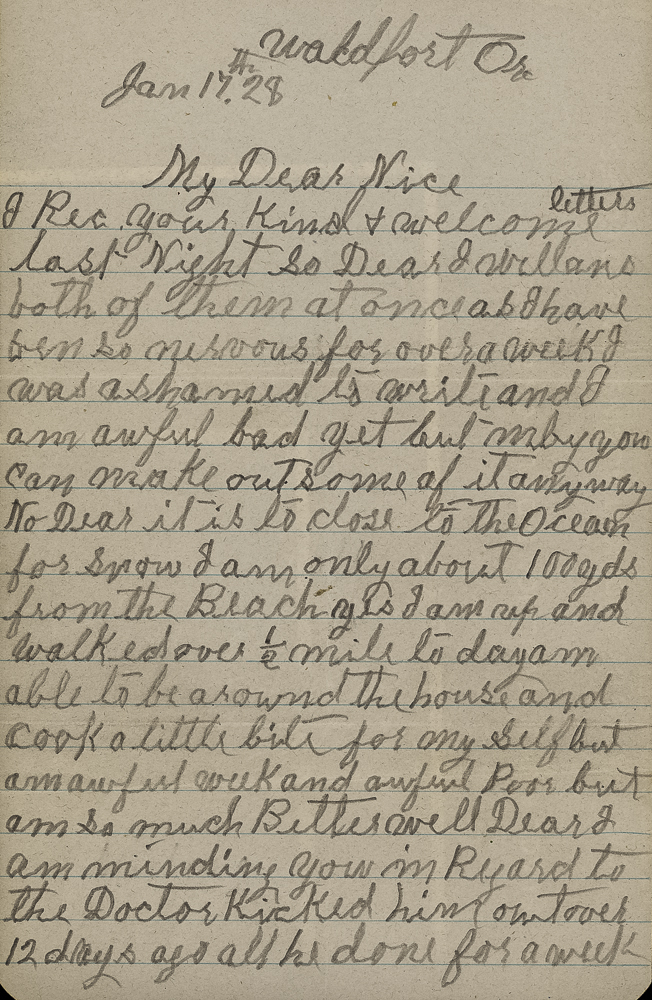 Waldfort Or
Jan 17th. 28
My Dear Nice
letters
I Rec. your Kind & welcome
last Night So Dear I will ans
both of them at once as I have
ben so nervous for over a week I
was ashamed to write and I
am awful bad yet but mby you
can make out some of it anyway
No Dear it is to close to the Ocean
for snow I am only about 100 yds
from the Beach yes I am up and
walked over ½ mile to day am
able to be around the house and
cook a little bite for my Self but
am awful week and awful Poor but
am so much Better well Dear I
am minding you in Regard to
the Doctor Kicked him out over
12 days ago all he done for a week